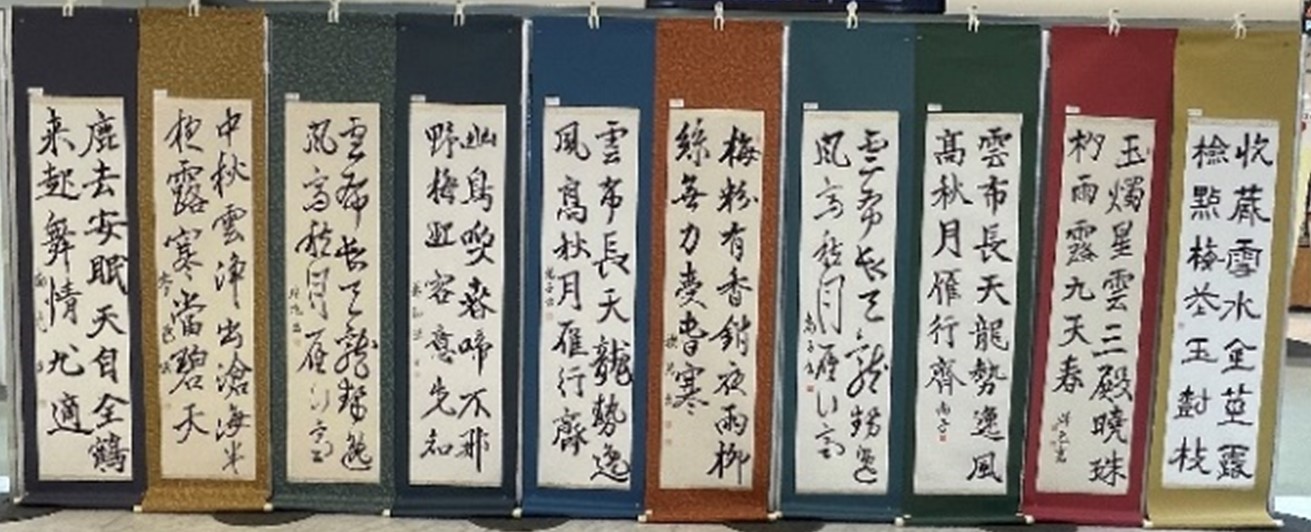 收蔵雪水金莖露
檢點梅花玉樹枝
玉燭星雲三殿曉珠
杓雨露九天春
雲布長天龍勢逸風
高秋月雁行齊
雲布長天龍勢逸
風高秋月雁行齊
梅粉有香銷夜雨柳
絲無力春寒
雲布長天龍勢逸
風高秋月雁行齊
幽鳥喚春啼不
野梅迎客意先知
雲布長天龍勢逸
風高秋月雁行齊
中秋雲浄出滄海半
夜露寒當碧天
鹿去安眠天自全鶴
来起舞情尤適